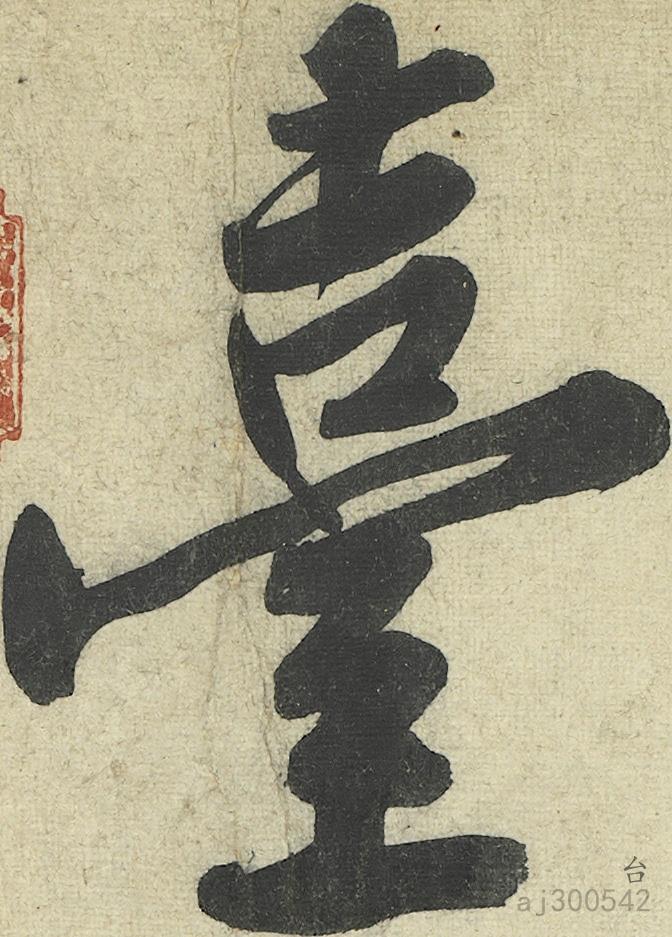 臺
台
aj300542